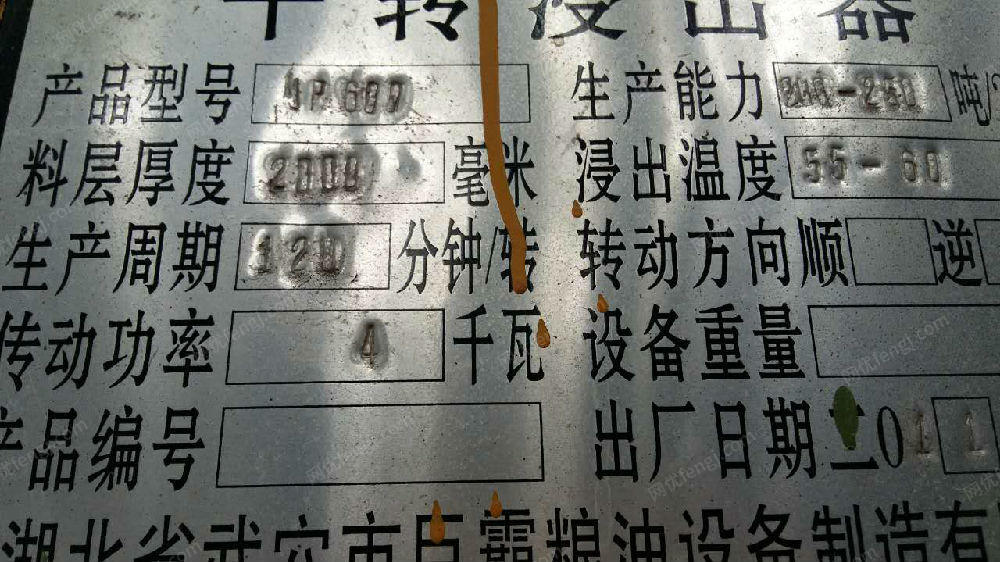 平转浸出器
产品型号 JP600 生产能力 200-250 吨/
料层厚度 2000 毫米 浸出温度 55-60
生产周期 120 分钟/转 转动方向 顺 逆
传动功率 4 千瓦 设备重量
产品编号 出厂日期 二01 1
湖北省武穴市巨霸粮油设备制造有